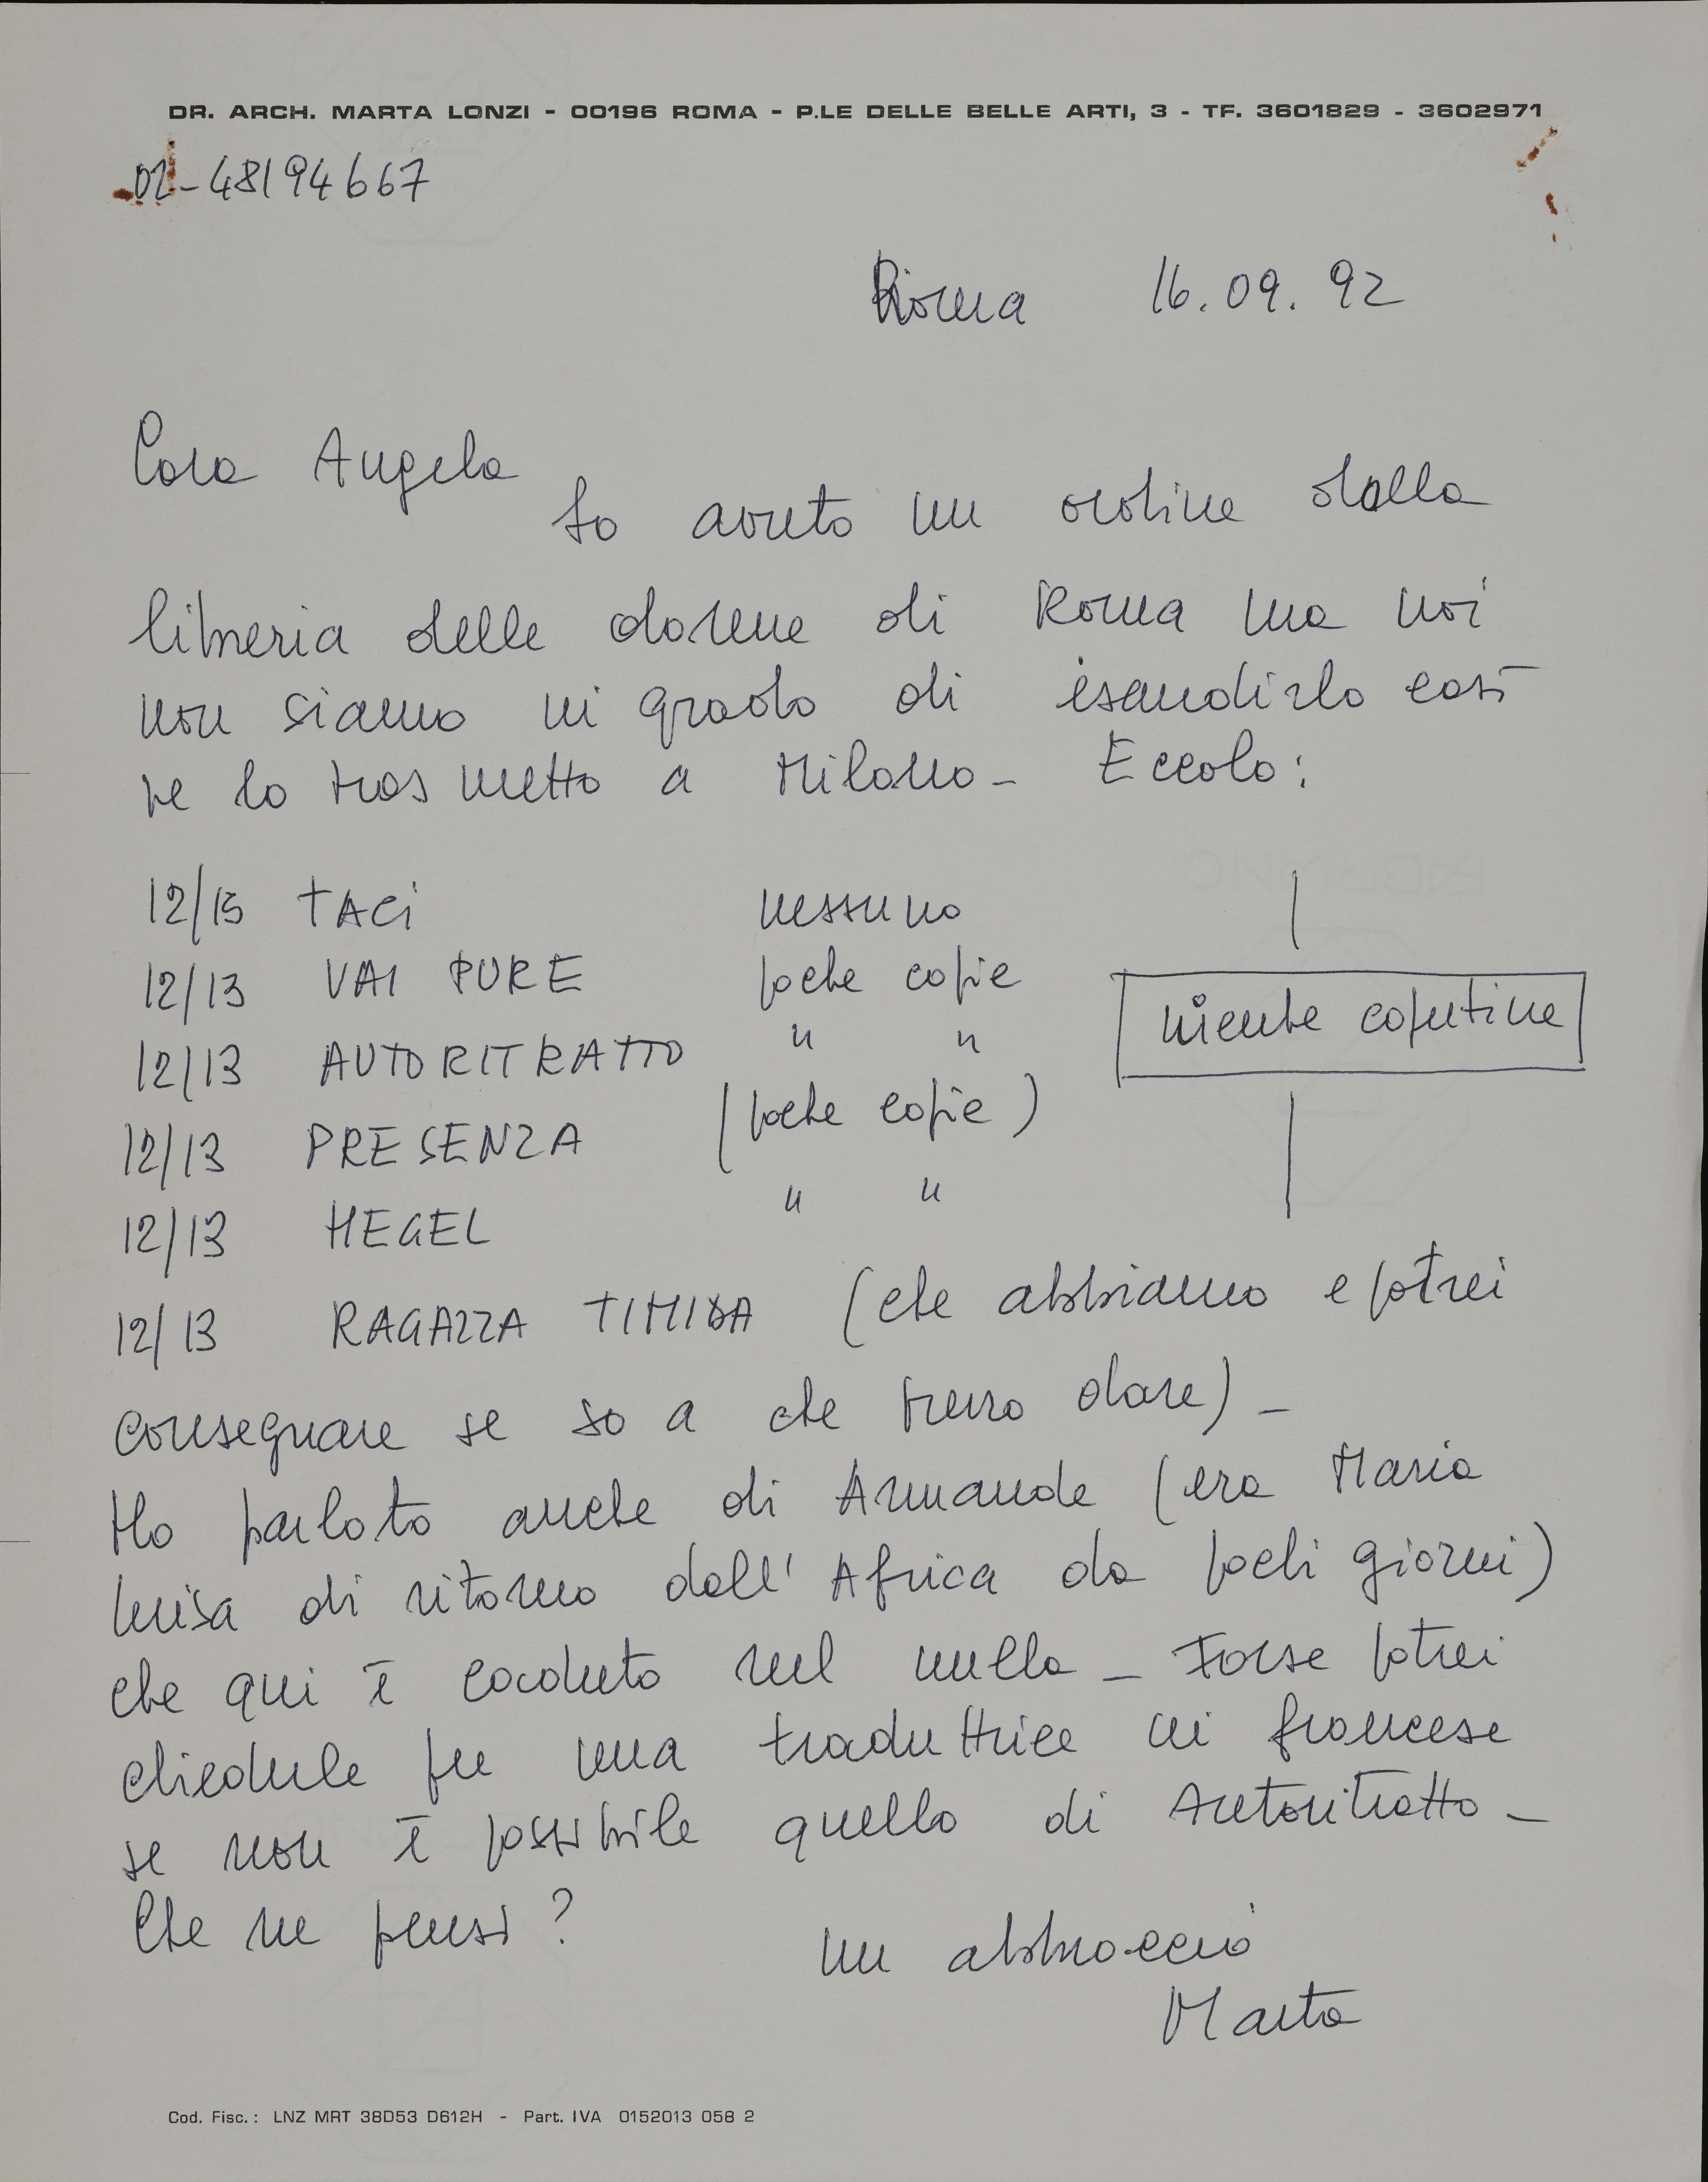 DR. ARCH. MARTA LONZI - 00196 ROMA - P.LE DELLE BELLE ARTI, 3 - TF. 3601829 - 3602971
02-48194667
Roma 16.09.92
Cara Angela
ho avuto un ordine dalla
libreria delle donne di Roma ma noi
non siamo in grado di esaudirlo così
te lo trasmetto a Milano - Eccolo:
12/15 TACI nessuno
12/13 VAI PURE poche copie
niente copertine
12/13 AUTORITRATTO " "
12/13 PRESENZA (poche copie)
12/13 HEGEL " "
12/13 RAGAZZA TIMIDA (che abbiamo e potrei
consegnare se so a che prezzo dare) -
Ho parlato anche di Armande (era Maria
luisa di ritorno dall'Africa da pochi giorni)
che qui è caduto nel nulla - Forse potrei
chiederle per una traduttrice in francese
se non è possibile quello di Autoritratto -
Che ne pensi?
un abbraccio
Marta
Cod. Fisc.: LNZ MRT 38D53 D612H - Part. IVA 0152013 058 2